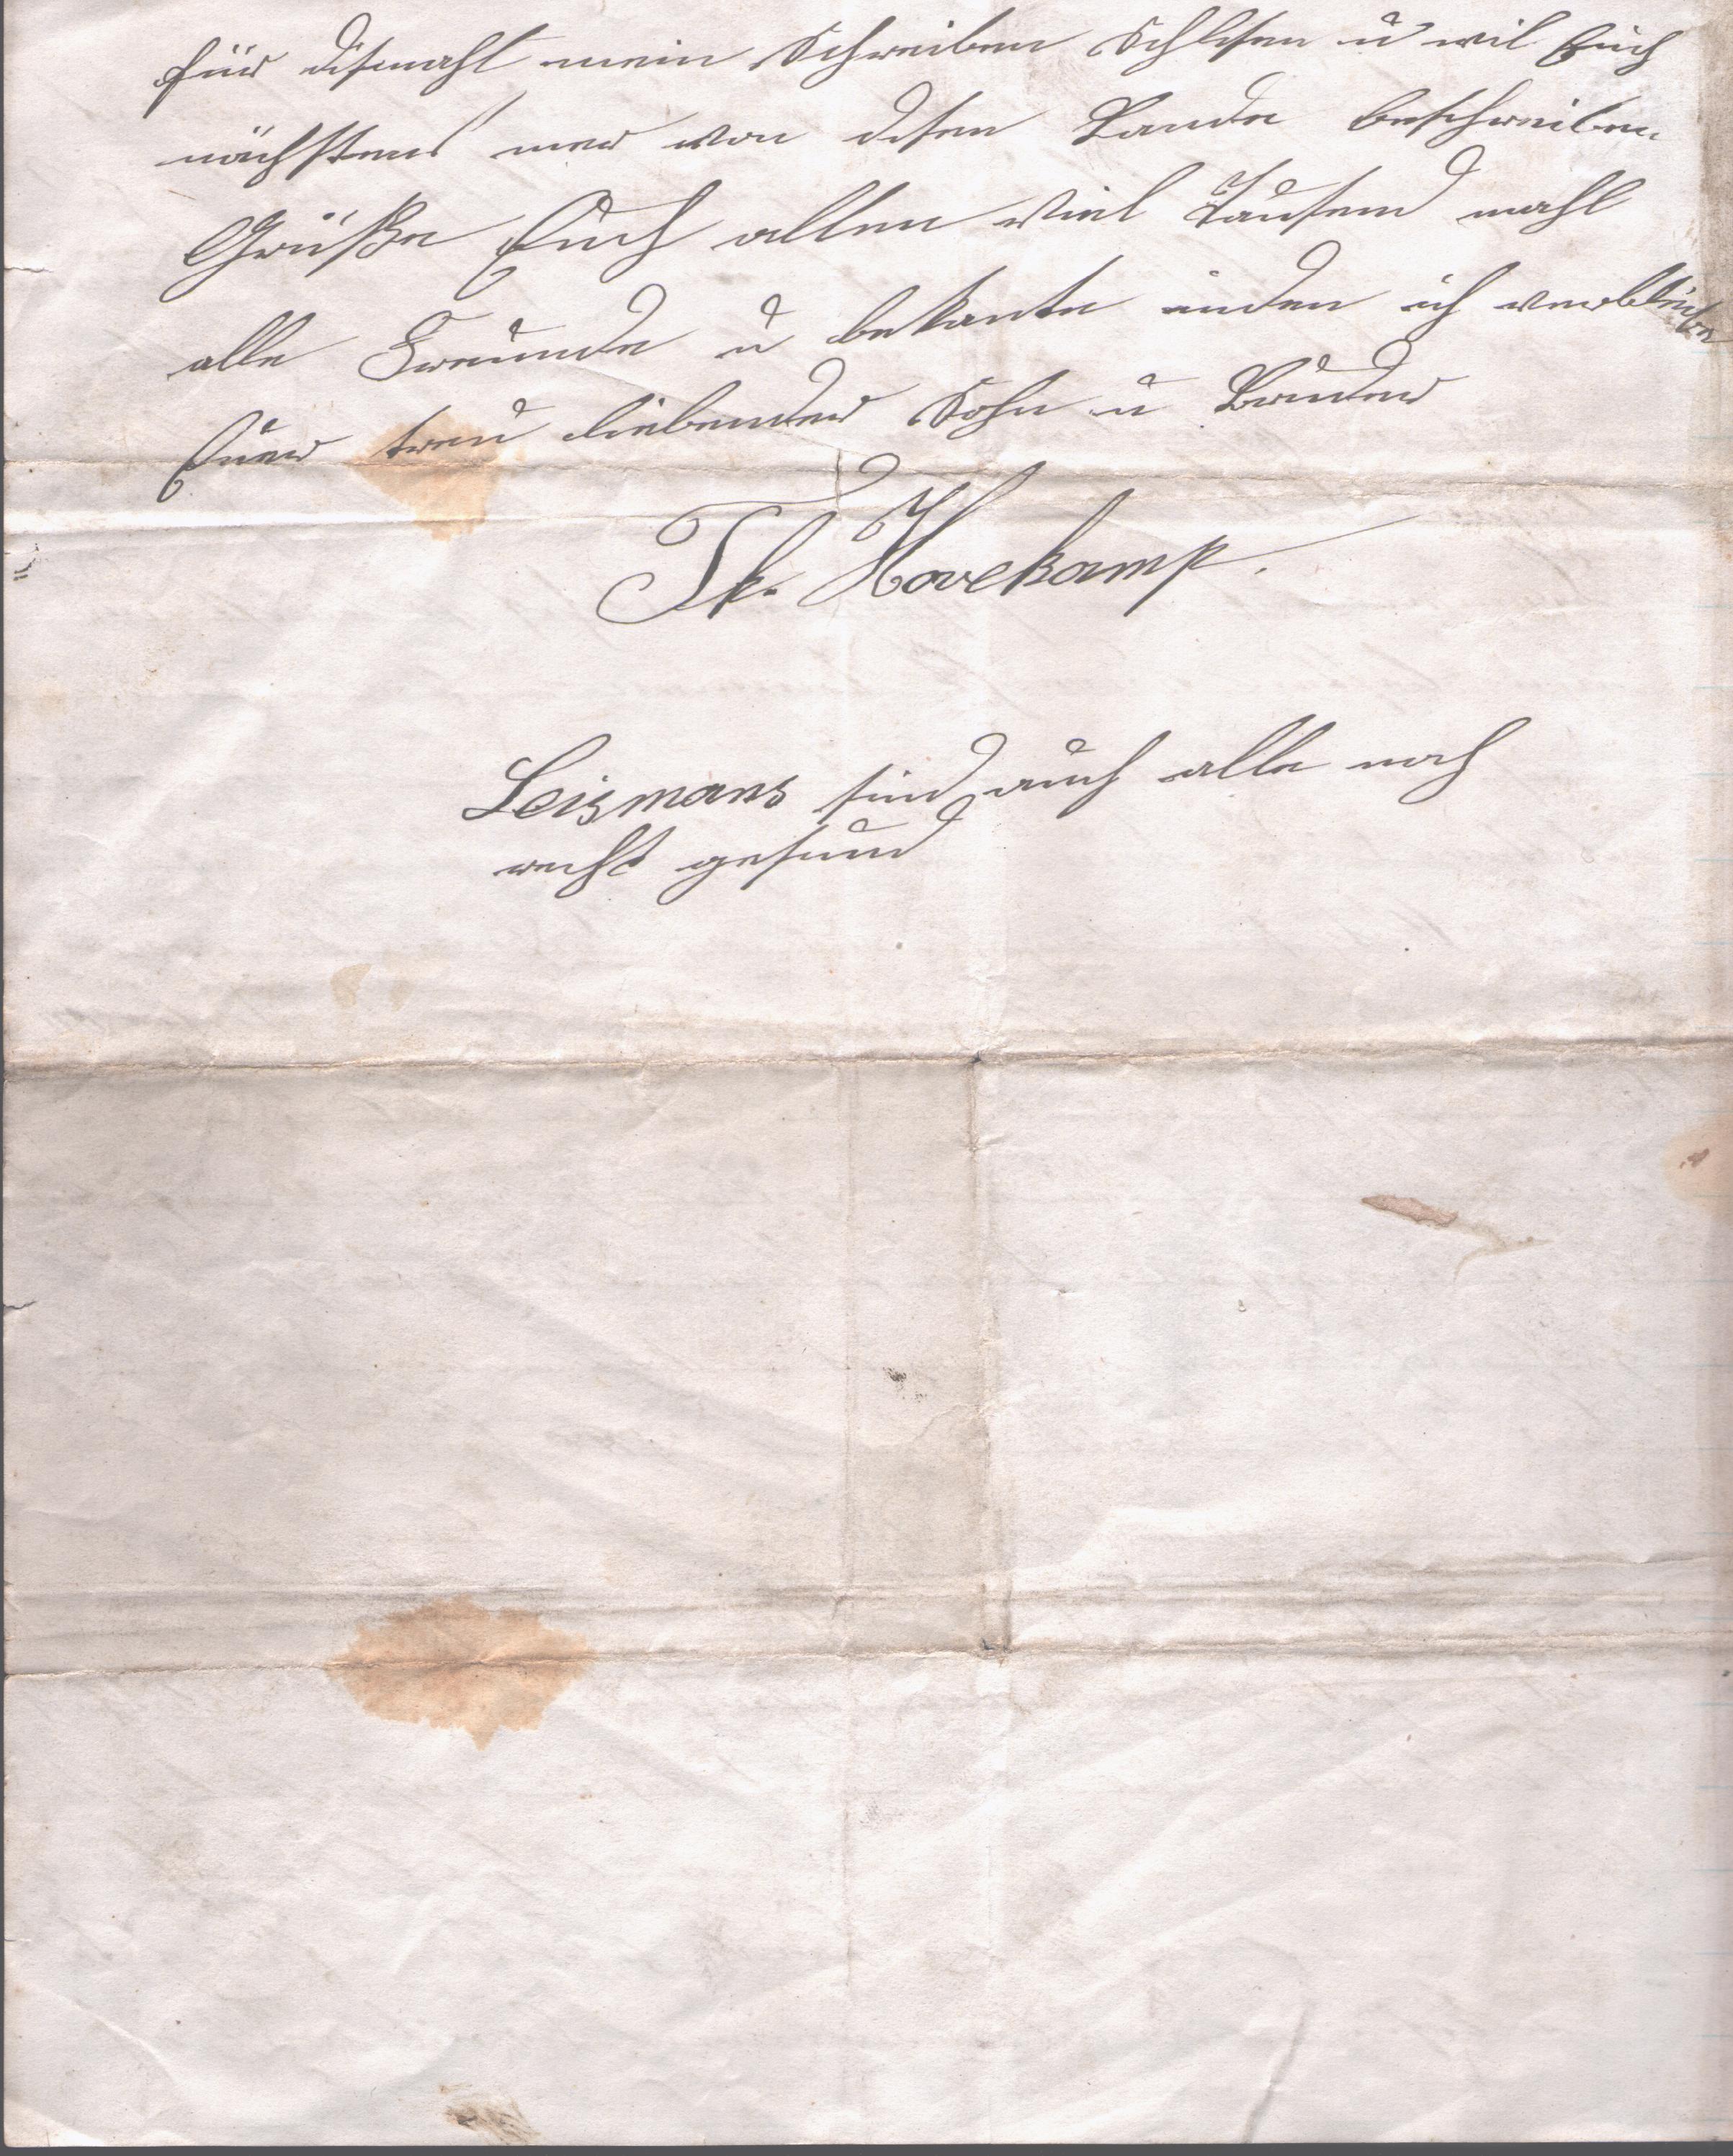 für dismahl mein Schreiben Schlisen u wil Euch
nächstens mer von disen Lande beschreiben.
Grüße Euch allen viel Tausend mahl
alle Freunde u bekante inden ich verbleibe
Euer treu liebender Sohn u Bruder
Th. Hovekamp.
Leismans sind auch alle noch
recht gesund